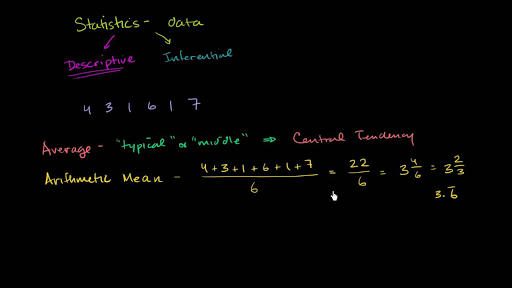 Statistics - data
Descriptive Inferential
4 3 1 6 1 7
Average - "typical" or "middle" ⇒ Central Tendency
Arithmetic Mean - (4+3+1+6+1+7)/6 = 22/6 = 3 4/6 = 3 2/3
3.6̅